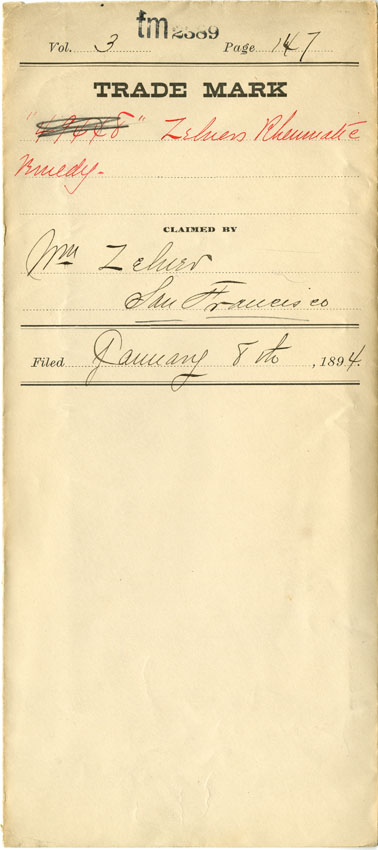 tm 2389
Vol. 3 Page 147
TRADE MARK
Zehners Rheumatic
Remedy.
CLAIMED BY
Wm Zehner
San Francisco
Filed January 8th, 1894.